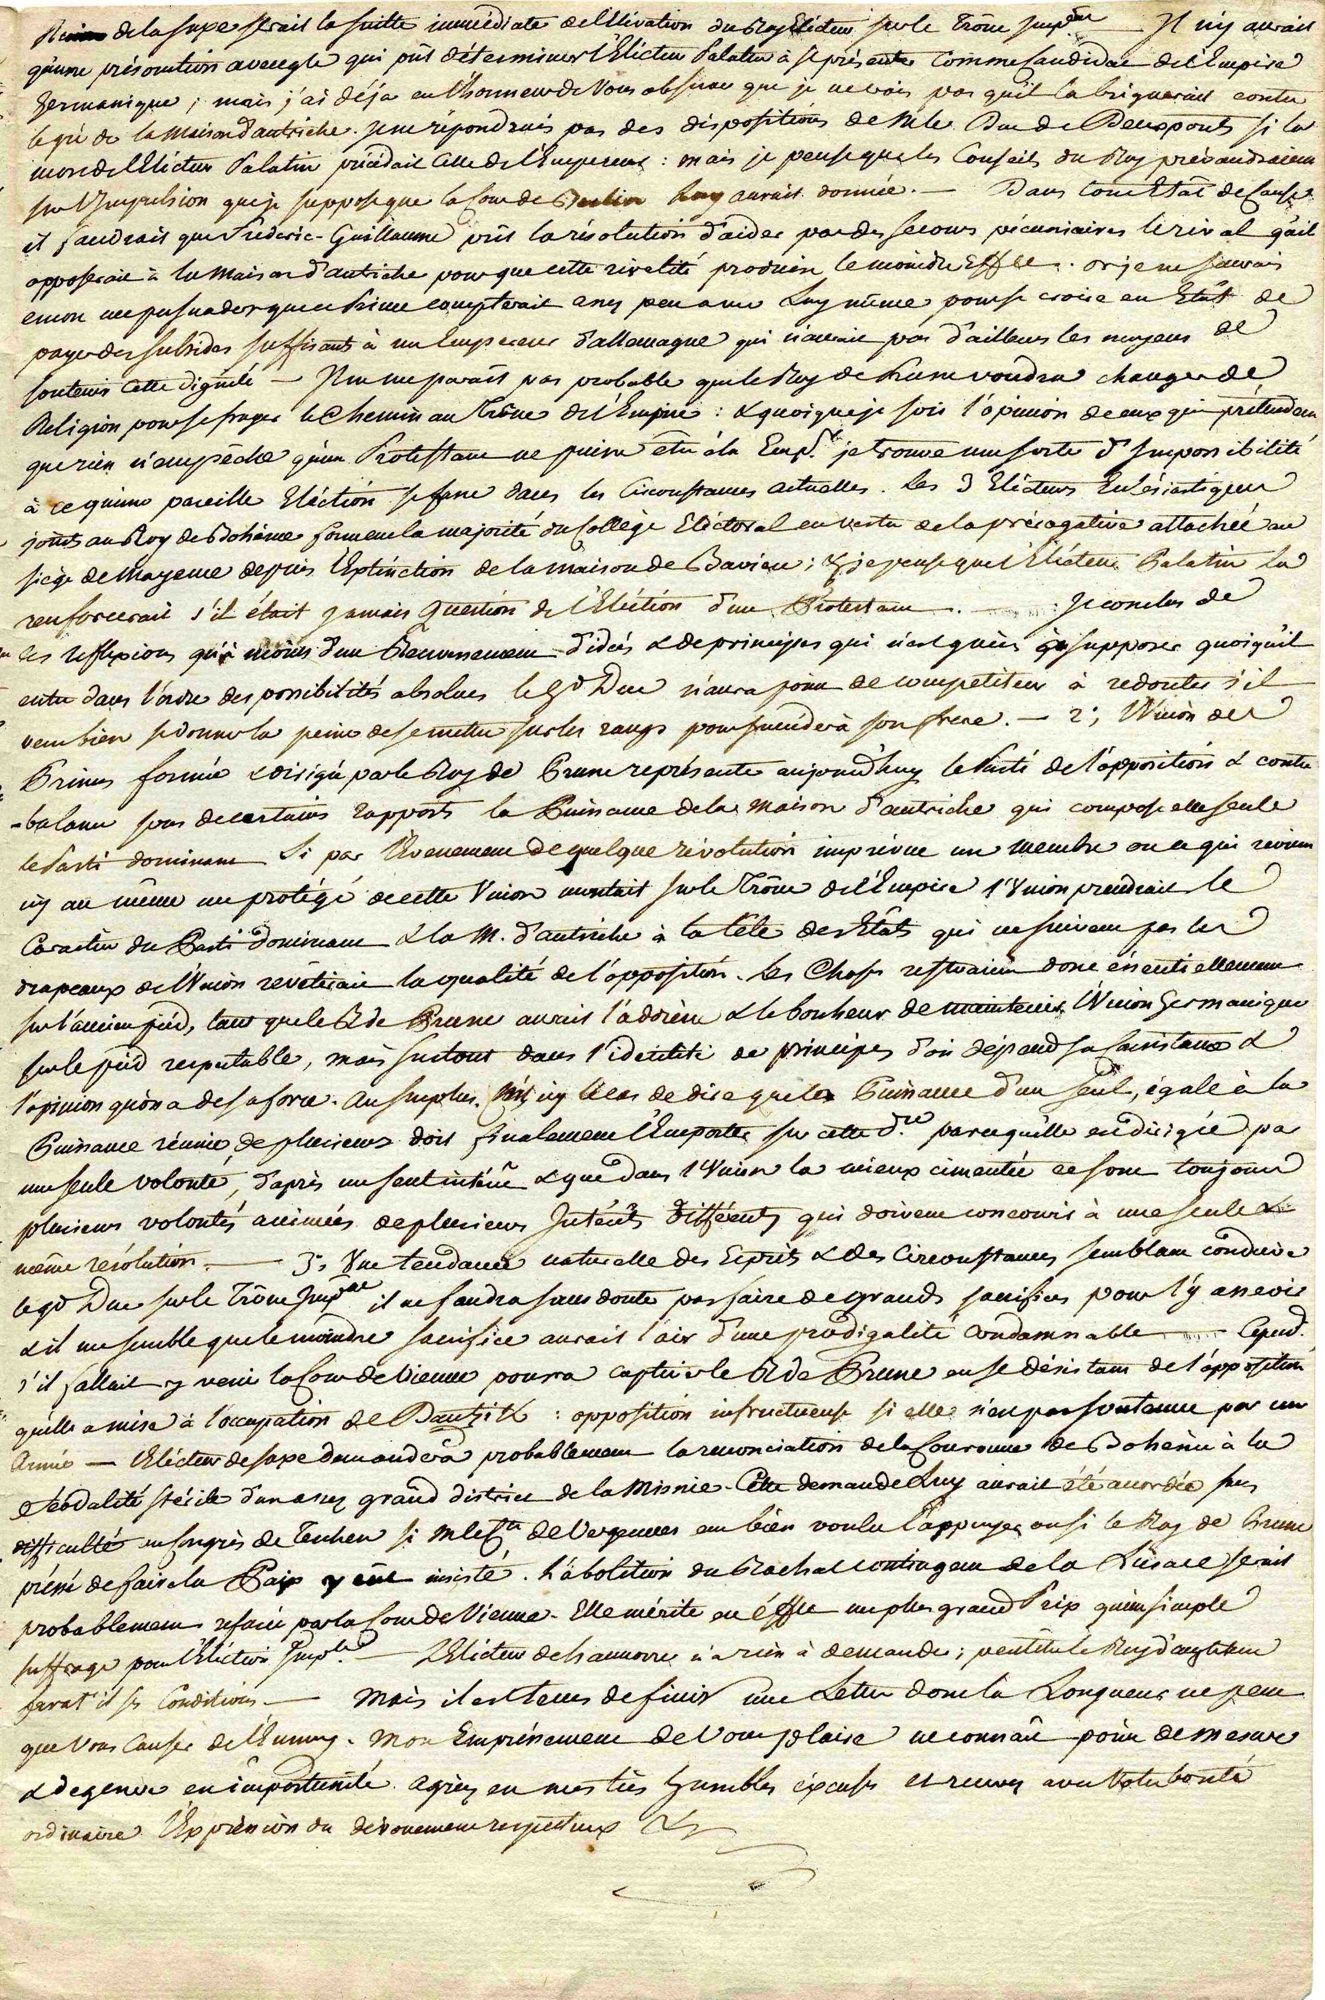 de la Saxe serait la suitte immédiate de l'Elévation du Roy Electeur sur le Trône Imp.ᵃˡ — Il n'y aurait
qu'une présomtion aveugle qui pût déterminer l'Electeur Palatin à se présenter comme Candidat de l'Empire
Germanique ; mais j'ai déja eu l'honneur de Vous observer que je ne vois pas qu'il la briguerait contre
le gré de la Maison d'autriche. Je ne répondrais pas des dispositions de M. le Duc de Deuxponts si la
mort de l'Electeur Palatin précédait celle de l'Empereur : mais je pense que les Conseils du Roy prévaudraient
sur l'Impulsion que je suppose que la Cour de Berlin Luy aurait donnée. — Dans tout Etat de Cause
il faudrait que Fréderic-Guillaume prît la résolution d'aider par des secours pécuniaires le rival qu'il
opposerait à la Maison d'autriche pour que cette rivalité produisit le moindre Effet. or je ne saurais
encor me persuader que ce Prince compterait assez peu avec Luy même pour se croire en Etat de
payer des subsides suffisants à un Empereur d'allemagne qui n'aurait pas d'ailleurs les moyens de
soutenir cette dignité — Il ne me parait pas probable que le Roy de Prusse voudra changer de
Religion pour se frayer le chemin au Trône de l'Empire : & quoique je sois l'opinion de ceux qui prétendent
que rien n'empêche qu'un Protestant ne puisse être élu Emp.ʳ je trouve une sorte d'Impossibilité
à ce qu'une pareille Eléction se fasse dans les Circonstances actuelles. Les 3 Electeurs Eclésiastiques
joints au Roy de Bohême forment la majorité du Collège Eléctoral en vertu de la prérogative attachée au
siège de Mayence depuis l'Extinction de la maison de Baviere ; & je pense que l'Electeur Palatin la
renforcerait s'il était jamais question de l'Eléction d'un Protestant. — Je conclus de
ces réflexions qu'à moins d'un Renversement d'idées & de principes qui n'est guères à supposer quoiqu'il
entre dans l'ordre des possibilités absolues le G.ᵈ Duc n'aura point de competiteur à redouter s'il
veut bien se donner la peine de se mettre sur les rangs pour succeder à son frere. — 2°, L'Union des
Princes formée & dirigée par le Roy de Prusse représente aujourd'huy le Parti de l'opposition & contre
-balance sous de certains rapports la Puissance de la Maison d'autriche qui compose elle seule
le Parti dominant Si par l'Evenement de quelque révolution imprévue un membre ou ce qui revient
icy au même un protégé de cette Union montait sur le Trône de l'Empire l'Union prendrait le
Caractere du Parti Dominant & la M. d'autriche à la tête des Etats qui ne suivent pas les
drapeaux de l'Union revêtirait la qualité de l'opposition. Les Choses resteraient donc éssentiellement
sur l'ancien pied, tant que le R. de Prusse aurait l'adresse & le bonheur de maintenir l'Union Germanique
sur le pied respectable, mais surtout dans l'identité de principes d'où dépend sa Consistance &
l'opinion qu'on a de sa force. Au surplus, c'est icy le cas de dire que la Puissance d'un seul, égale à la
Puissance réunie de plusieurs doit finalement l'Emporter sur cette d.ʳᵉ parce qu'elle est dirigée par
une seule volonté, d'après un seul intérêt & que dans l'Union la mieux cimentée ce sont toujours
plusieurs volontés animées de plusieurs Intérêts différents qui doivent concourir à une seule &
même résolution. — 3°, Une tendance naturelle des Esprits & des Circonstances semblant conduire
le g.ᵈ Duc sur le Trône Imp.ᵃˡ il ne faudra sans doute pas faire de grands sacrifices pour l'y asseoir
& il me semble que le moindre sacrifice aurait l'air d'une prodigalité condamnable — Cepend.ᵗ
s'il fallait y venir la Cour de Vienne pourra captiver le R. de Prusse en se désistant de l'opposition
qu'elle a mise à l'occupation de Dantzik : opposition infructueuse si elle n'est pas soutenue par une
Armée — L'Electeur de Saxe demandera probablement la renonciation de la Couronne de Bohême à la
féodalité stérile d'un assez grand district de la Misnie. Cette demande Luy aurait été accordée sans
difficulté au Congrès de Teschen si M. le C.ᵗᵉ de Vergennes eut bien voulu l'appuyer ou si le Roy de Prusse
préssé de faire la Paix y eût insisté. L'abolition du Rachat contingent de la Lusace serait
probablement refusée par la Cour de Vienne. Elle mérite en éffet un plus grand Prix qu'un simple
suffrage pour l'Eléction Imp.ˡᵉ — L'Electeur de hannovre n'a rien à demander ; peut-être le Roy d'angleterre
ferat'il ses Conditions — Mais il est tems de finir une Lettre dont la Longueur ne peut
que Vous causer de l'Ennuy. Mon Empressement de Vous plaire ne connaît point de mesure
& dégenere en importunité. Agréez en mes très humbles éxcuses et recevez avec Votre bonté
ordinaire l'Expréssion du dévouement respectueux &c